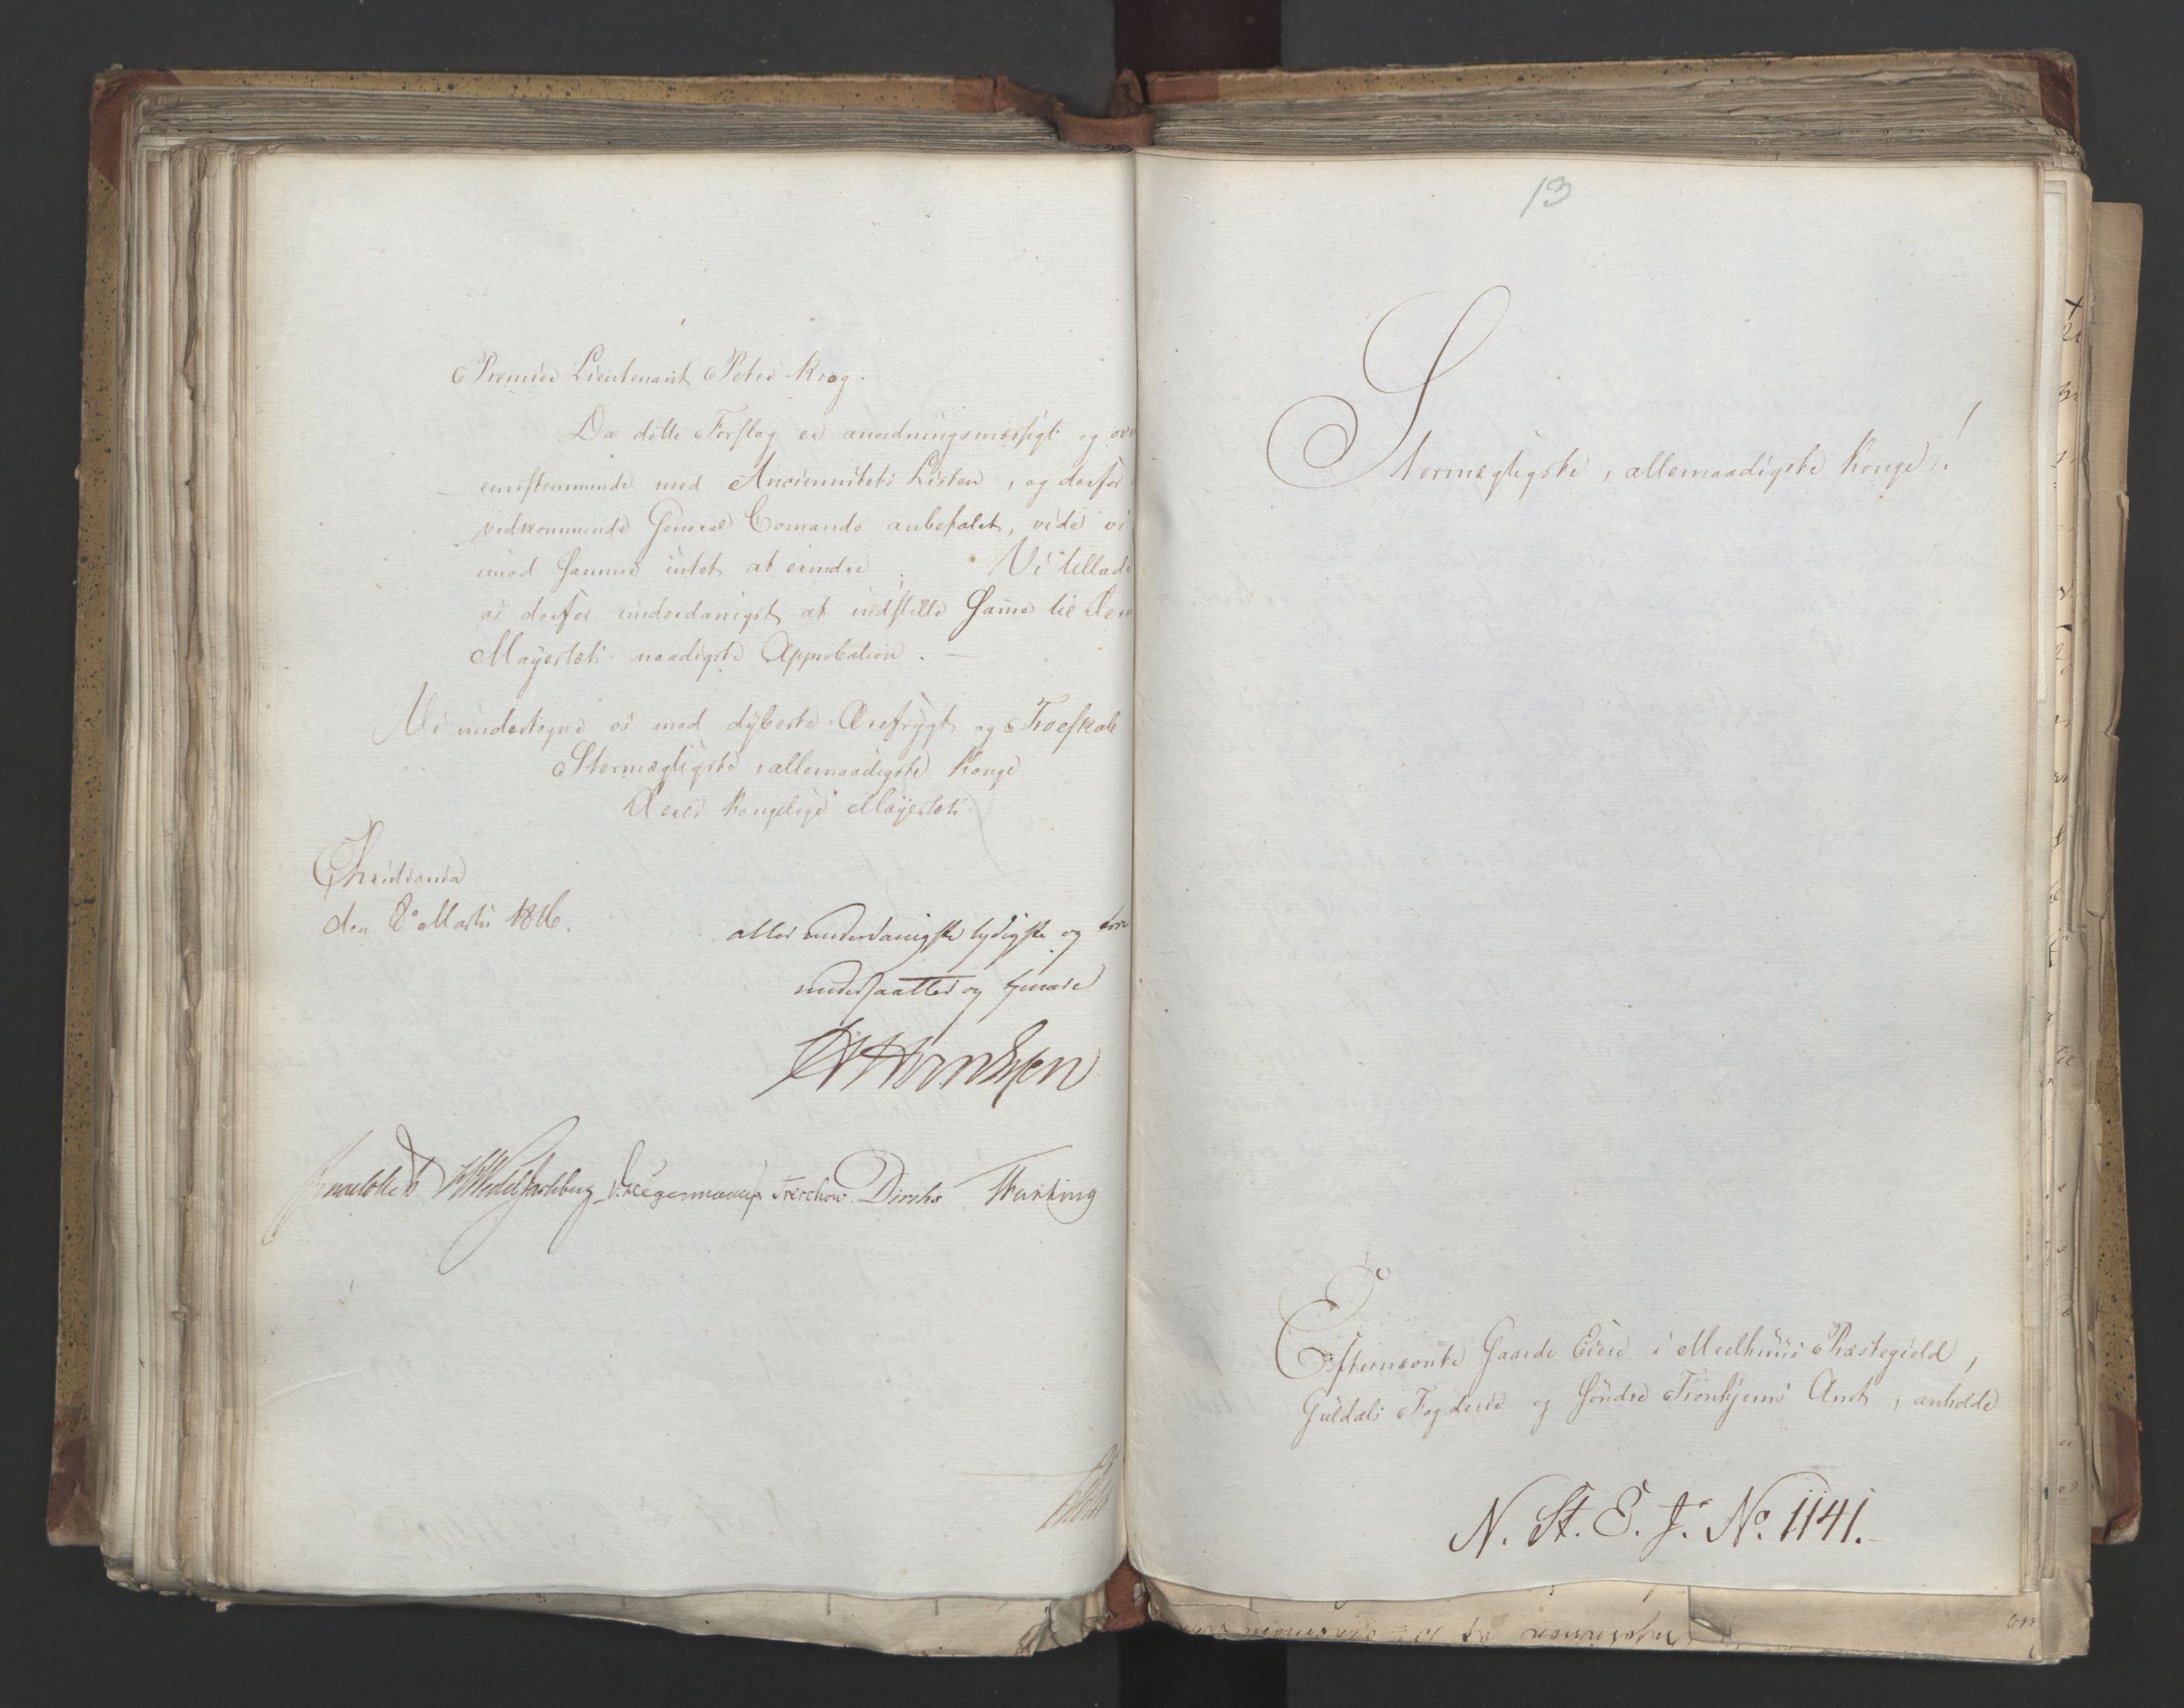 Premier Lieutenant Peter Krog.
Da dette Forslag er anordningsmæssigt og ov
eensstemmende med Anciennitets Listen, og derfor
vedkommende General Comando anbefalet, vide vi
imod samme intet at erindre. Vi tillade
os derfor underdanigst at indstille Same til Der
Mayestæts naadigste Approbation. —
Vi undertegne os med dybeste Ærefrygt og Troeskab
Stormægtigste, allernaadigste Konge
Deres Kongelige Mayestæts
Christiania
den 8de Marts 1816.
aller underdanigste lydigste og troe
undersaatter og tjenere
Sommerhielm Wedel Jarlsberg v. Hegermann Treschow Diriks
13
Stormægtigste, allernaadigste Konge!
Efternævnte Gaarde Eiere i Meelhuus Præstegield,
Guldals Fogderie og Søndre Tronhjems Amt, anholde
N. St. E. J. No. 1141.